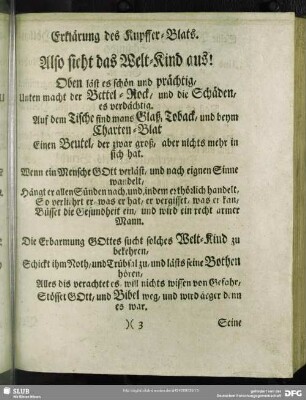 Erklärung des Kupffer-Blats.
Also sieht das Welt-Kind aus!
Oben läst es schön und prächtig,
Unten macht der Bettel-Rock, und die Schäden,
es verdächtig.
Auf dem Tische find man Glaß, Toback, und beym
Charten-Blat
Einen Beutel, der zwar groß, aber nichts mehr in
sich hat.
Wenn ein Mensche GOtt verläst, und nach eignen Sinne
wandelt,
Hängt er allen Sünden nach, und, indem er thörlich handelt,
So verliehrt er, was er hat, er vergisset, was er kan,
Büsset die Gesundheit ein, und wird ein recht armer
Mann.
Die Erbarmung GOttes sucht solches Welt-Kind zu
bekehren,
Schickt ihm Noth, und Trübsal zu, und lästs seine Bothen
hören,
Alles dis verachtet es, will nichts wissen von Gefahr,
Stösset GOtt, und Bibel weg, und wird ärger denn
es war.
)( 3
Seine
SLUB
DFG